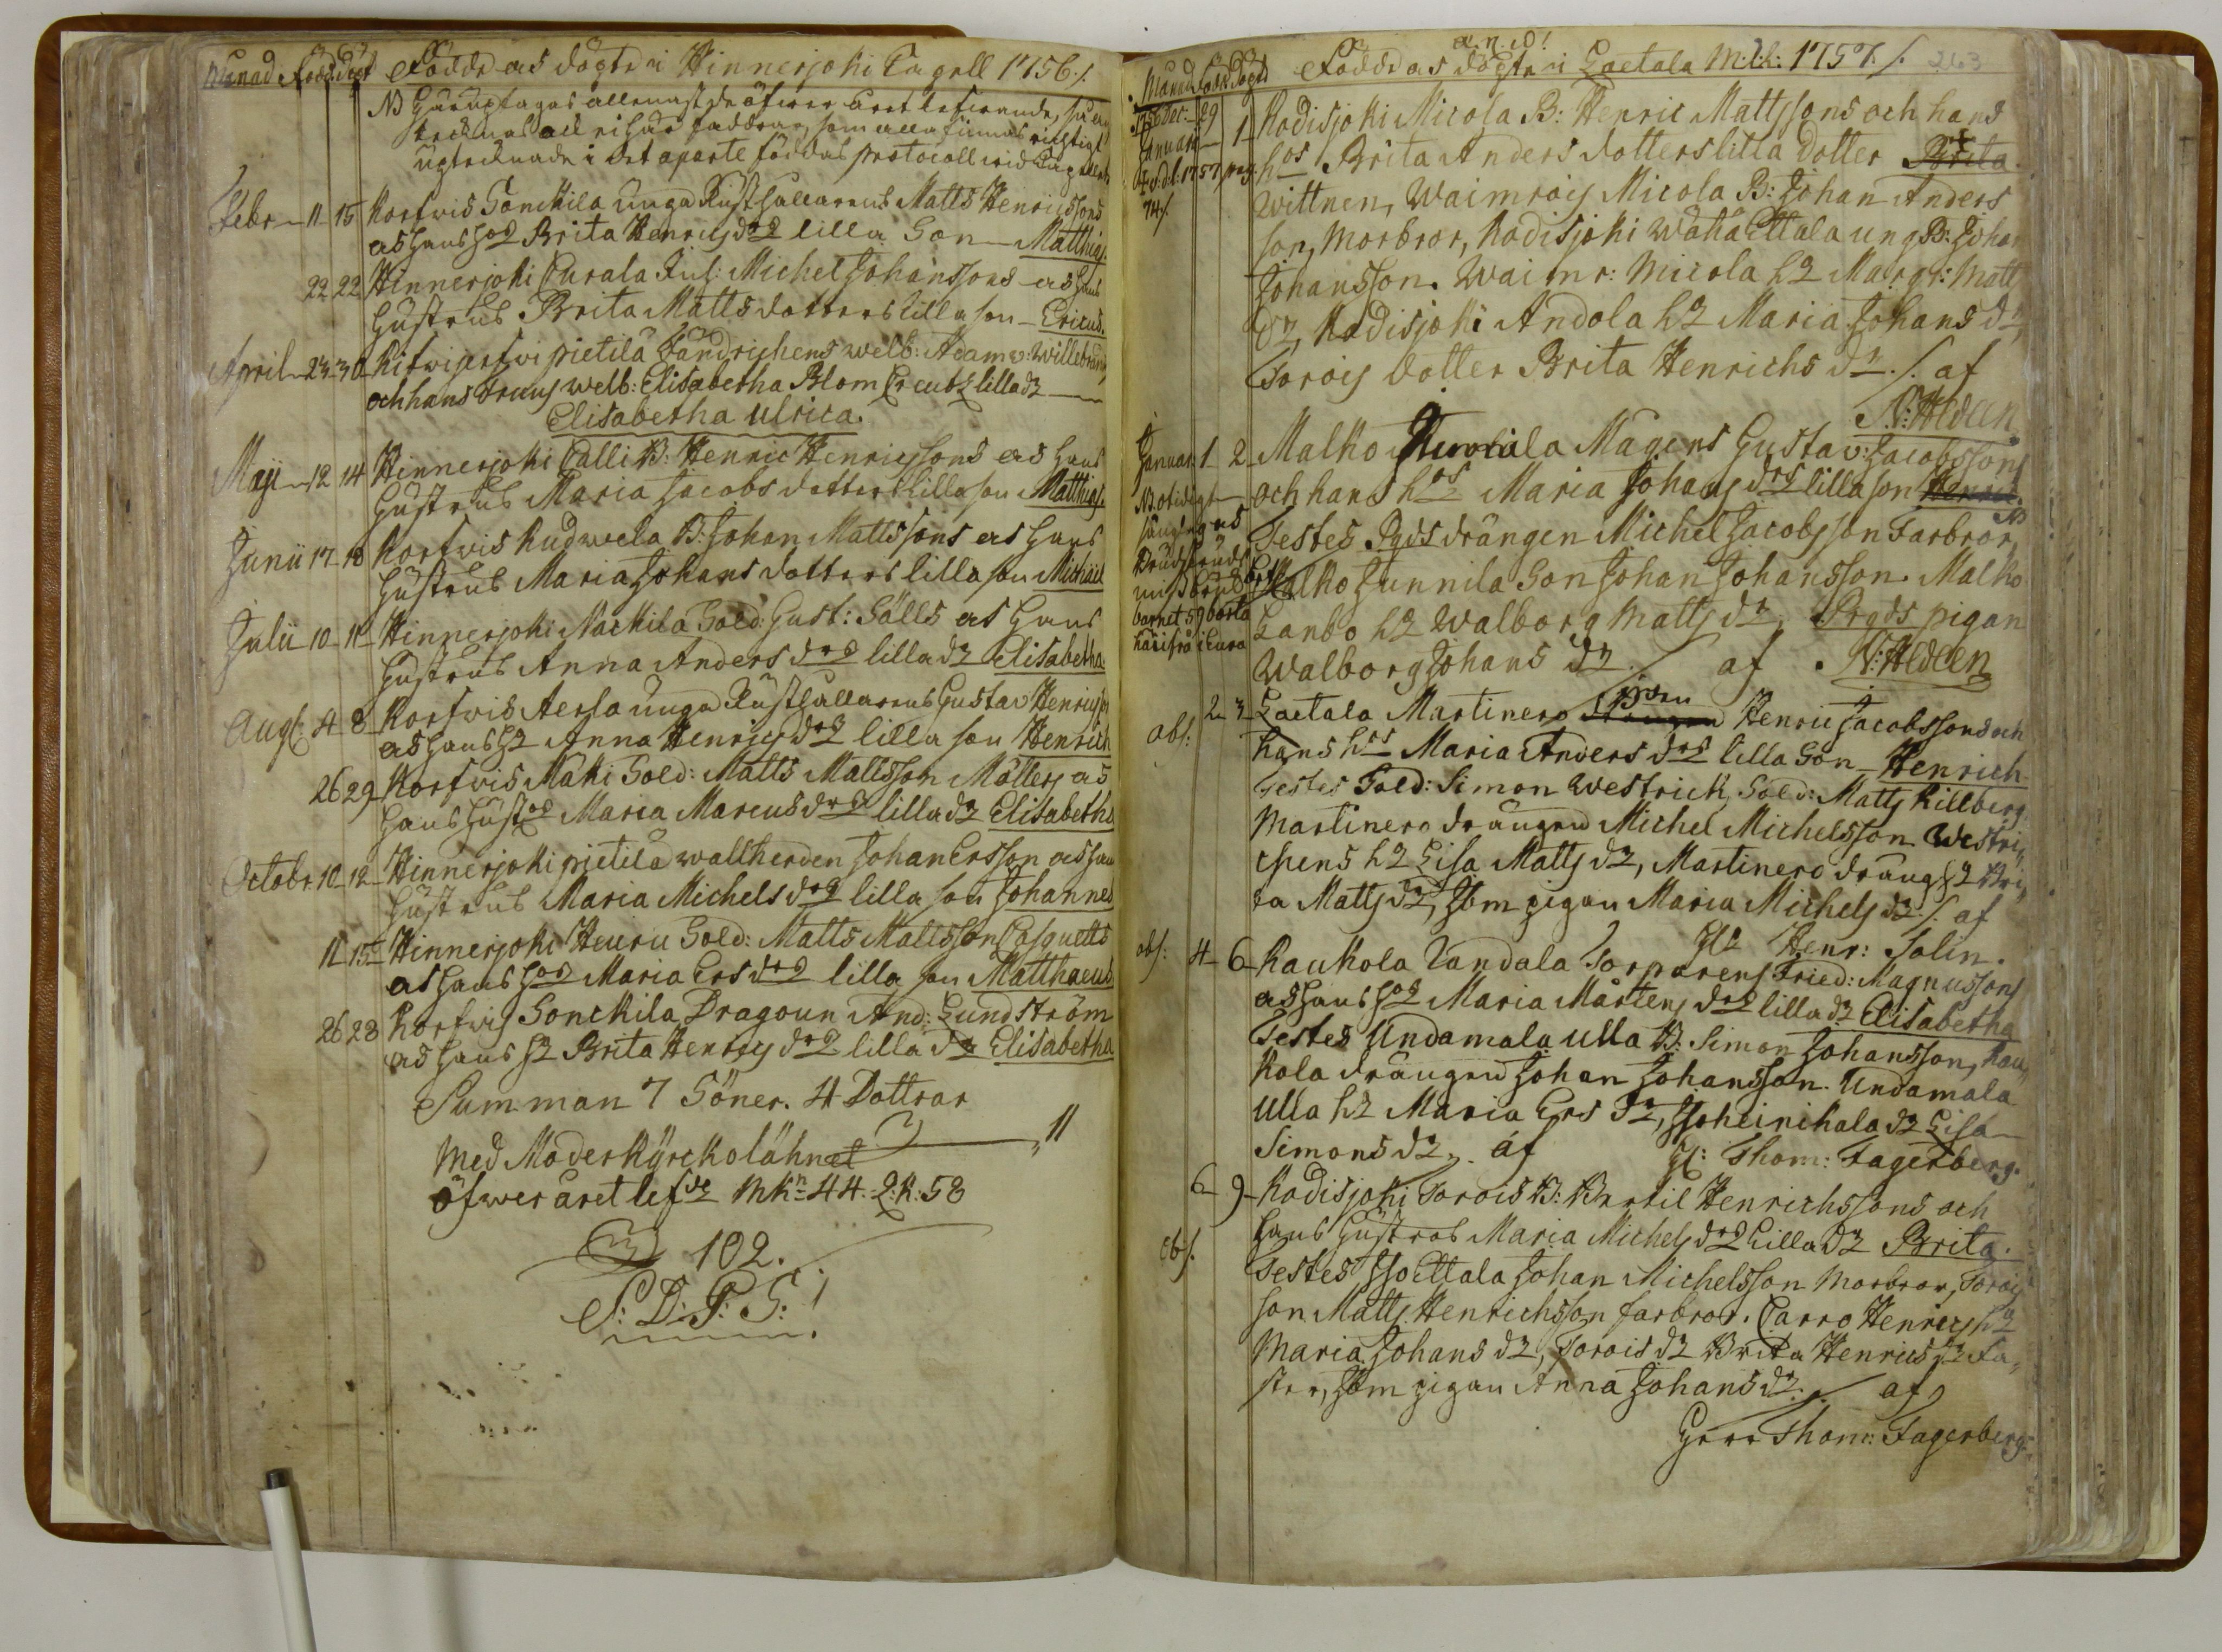 Månad Född Döpt Födde as döpte i Hinnerjoki Capell 1756./.
NB Här uptagas allenast de öfwer året lefwande, så an
tecknas ock ei här faddrar, som alla finnas richtigt
upteknade i det aparte föddas protocoll wid Capellet
Febr 11 15 Korfwis Sonckila unga Rusthållarens Matts Henricssons
as hans hos Brita Henrics drs lilla Son Matthias.
22 22 Hinnerjoki Eurala Inh: Michel Johanssons as hans
hustrus Brita Matts dotters lilla son Ericus.
April 23 30 Kifwijerfwi pietilä Fändrichens welb: Adam v: Willebrands
och hans Frus welb: Elisabetha Blom Creutz lilla dr
Elisabetha Ulrica.
Maji 12 14 Hinnerjoki Calli B: Henric Henricssons as hans
hustrus Maria Jacobs dotters lilla son Matthias
Junii 17 18 Korfwis Rudwela B: Johan Mattssons as hans
hustrus Maria Johans dotters lilla son Michael
Julii 10 11 Hinnerjoki Nackila Sold: Gust: Sälls as hans
hustrus Anna Anders drs lilla dr Elisabetha
Augs: 4 8 Korfwis Aersa unga Rusthållarens Gustav Henricsson
as hans h Anna Henrics drs lilla son Henrich
26 29 Korfwis Mäki Sold: Matts Mattsson Möllers as
hans hust Maria Marcus drs lilla dr Elisabetha
Octobr 10 12 Hinnerjoki pietilä wallherden Johan Ersson as hans
hustrus Maria Michels drs lilla son Johannes
11 15 Hinnerjoki Heuru Sold: Matts Mattsson Casquetts
as hans hos Maria Ers drs lilla son Matthaeus
26 28 Korfwis Sonckila Dragoun And: Lundström
as hans h Brita Henrics drs lilla dr Elisabetha
Summan 7 Söner. 4 Dottrar
11
Med Moder Kyrckolähnet
öfwer året lefde MKn 44. Q:K: 58
102.
S: D: P: G:!
A.N.D!
Månad Född Döpt Födde as döpte i Laetala M:K: 1757./. 263
1756 Dec: 29
Januarii 1 Kodisjoki Micola B: Henric Mattssons och hans
hos Brita Anders dotters lilla Dotter Brita.
1757 pag: 74/.
wittnen, Waimrois Micola B: Johan Anders
son, Morbror, Kodisjoki Wähä Ettala ung B: Johan
Johansson. Waimr: Micola h Margr: Matts
dr, Kodisjoki Andola h Maria Johans dr,
Torois Dotter Brita Henrichs dr./. af
N: Aldeen
Januar: 1 2 Malko Magens Gustav Jacobssons
och hans hos Maria Johans drs lilla son Henric.
NB
Testes Pgds drängen Michel Jacobsson Farbror,
Malko Junnila Son Johan Johansson. Malko
barnet borta
härifrå i Eura
Lanbo h Walborg Matts dr, Prgds pigan
Walborg Johans dr./. af N: Aldeen
2 3 Laetala Martinero Henric Jacobssons och
obs: hans hos Maria Anders drs lilla Son Henrich
Testes Sold: Simon Westrick, Sold: Matts Killberg.
Martinero drängen Michel Michelsson. Westri„
ckens h Lisa Matts dr, Martinero drängs h Bri„
ta Matts dr, Ibm pigan Maria Michels dr./. af
Hr Henr: Salin.
obs: 4 6 Kaukola Vandala Torparens Fried: Magnussons
as hans hos Maria Mårtens drs lilla dr Elisabetha
Testes Undamala Ulla B: Simon Johansson, Kau„
kola drängen Johan Johansson. Undamala
Ulla h Maria Ers dr, Isoheinikala dr Lisa
Simons dr, af H: Thom: Fagerberg.
6 9 Kodisjoki Torois B: Bertil Henrichssons och
obs. hans hustros Maria Michels drs Lilla dr Brita.
Testes Iso Ettala Johan Michelsson Morbror, Torois
son Matts Henrichsson farbror. Carro Henrics h
Maria Johans dr, Torois dr Brita Henrics dr Fa„
ster, Ibm pigan Anna Johans dr./. af
Herr Thom: Fagerberg.